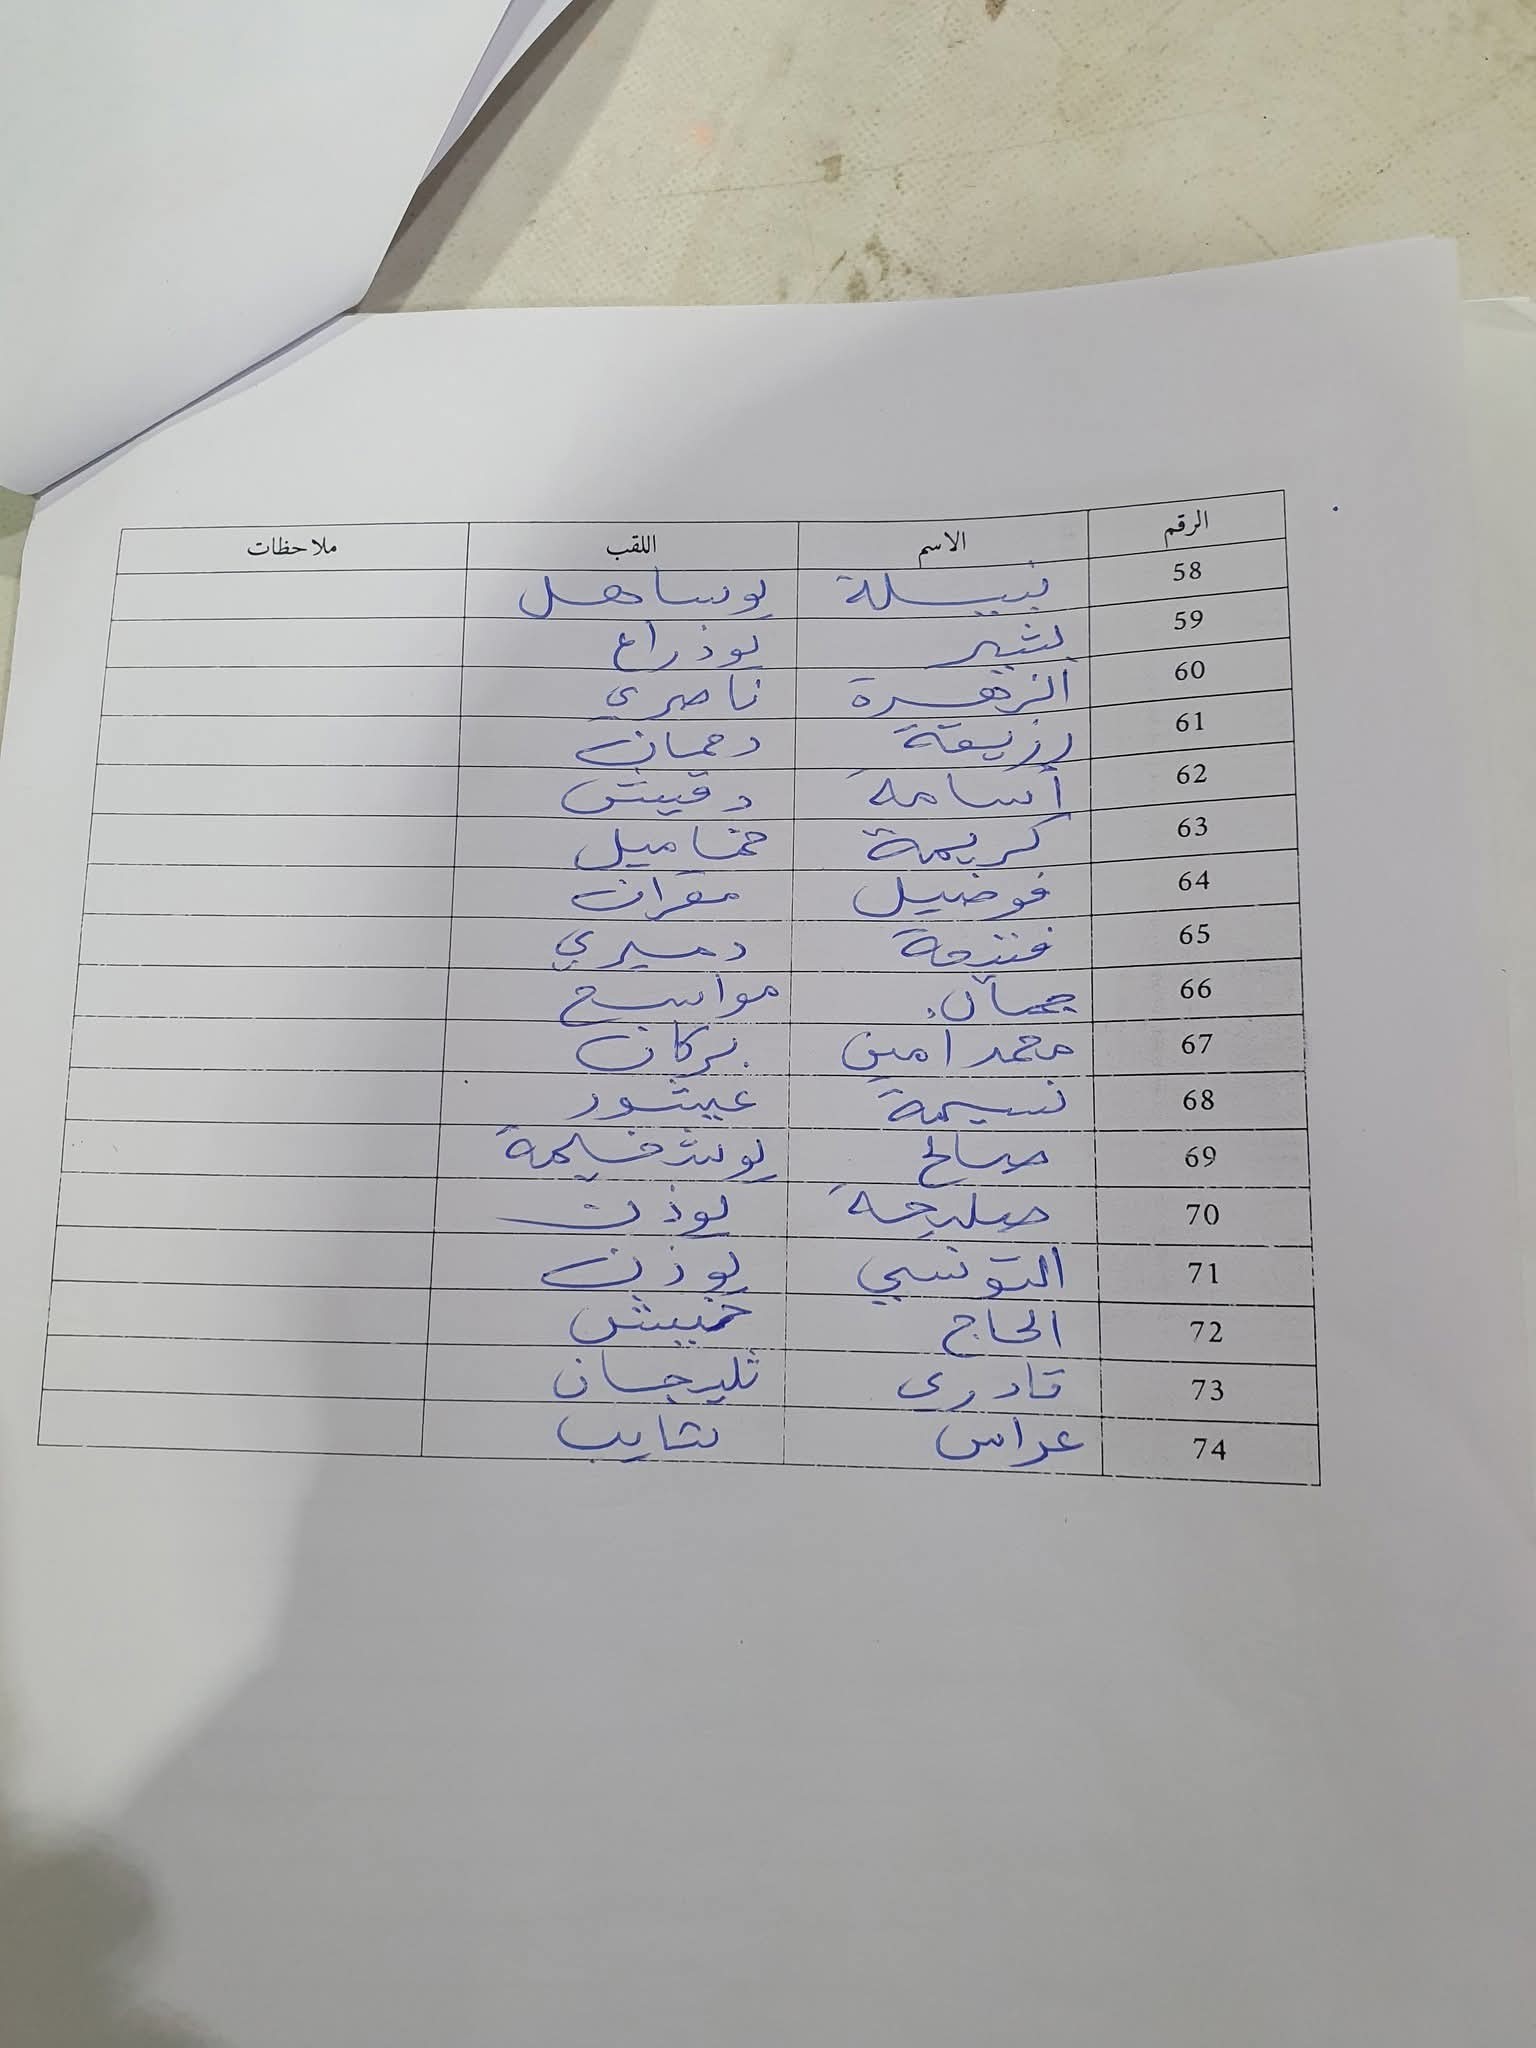 الرقم الاسم اللقب ملاحظات
58 نبيلة بوساهل
59 بشير بوذراع
60 الزهرة ناصري
61 رزيقة دحمان
62 أسامة دقيش
63 كريمة خماميل
64 فوضيل مقران
65 دميري
66 جمال مواسح
67 محمد امين بركان
68 نسيمة عيشور
69 صالح
70 صليحة بوذن
71 التونسي بوذن
72 الحاج خبيش
73 قادري ثليجان
74 عراس شايب